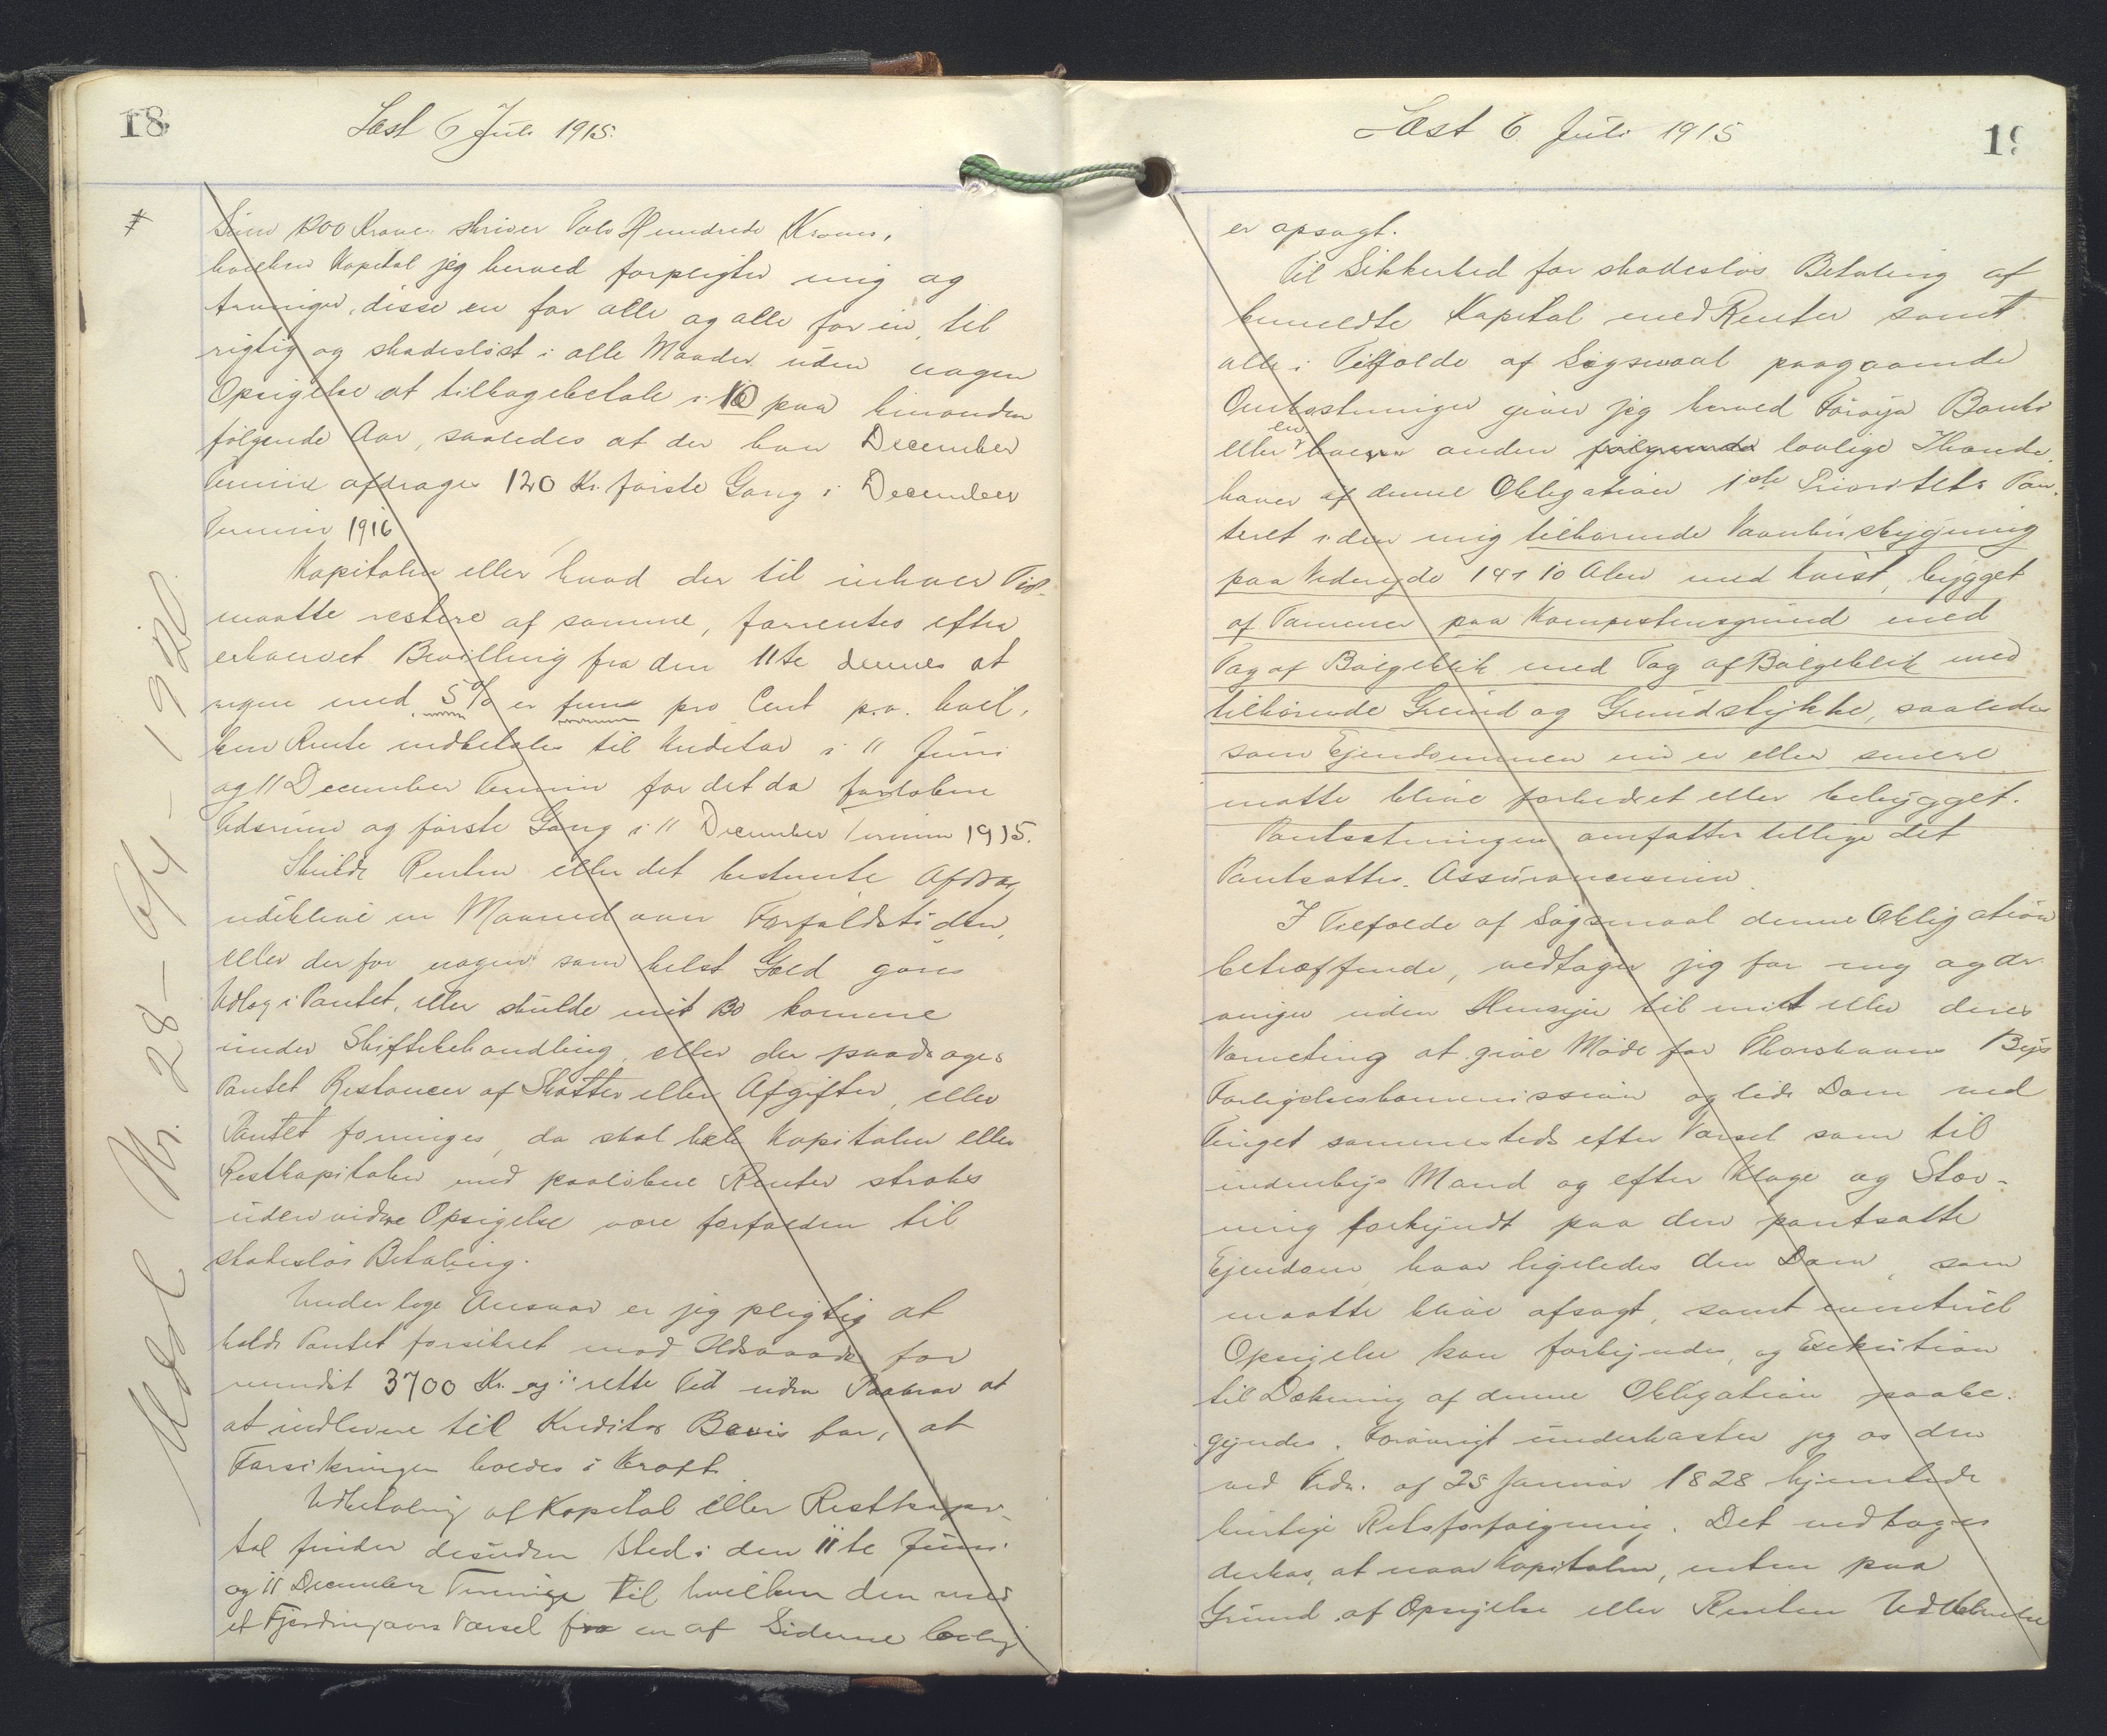 18
Læst 6 Juli 1915.
Sum 1200 Kroner skriver Tolv Hundrede Kroner,
hvilken Kapital jeg herved forpligter mig og
Arvinger, disse en for alle og alle for en, til
rigtig og skadesløst i alle Maader uden nogen
Opsigelse at tilbagebetale i 10 paa hinanden
følgende Aar, saaledes at der hver December
Termin afdrages 120 Kr. første Gang i December
Termin 1916
Kapitalen eller hvad der til enhver Tid
maatte restere af samme, forrentes efter
erhvervet Bevilling fra den 11te dennes at
regne med 5% er fem pro Cent p.a. hvil-
ken Rente indbetales til Kreditor i 11 Juni
og 11 December Termin for det da forløbne
Tidsrum og første Gang i 11 December Termin 1915.
Skulde Renten eller det bestemte Afdrag
udeblive en Maaned over Forfaldstiden,
eller der for nogen som helst Gæld gøres
Udlæg i Pantet, eller skulde mit Bo komme
under Skiftebehandling, eller der paadrages
Pantet Restancer af Skatter eller Afgifter, eller
Pantet forringes, da skal hele Kapitalen eller
Restkapitalen med paaløbne Renter straks
uden videre Opsigelse være forfalden til
skadesløs Betaling.
Under lige Ansvar er jeg pligtig at
holde Pantet forsikret mod Ildsvaade for
mindst 3700 Kr. og i rette Tid uden Paakrav at
at indlevere til Kreditor Bevis for, at
Forsikringen holdes i Kraft.
Udbetaling af Kapital eller Restkapi-
tal finder desuden Sted i den 11te Juni
og 11 December Termin til hvilken den med
et Fjerdingaars Varsel fra en af Siderne lovlig
Udsl Nr. 28 - 6/4 - 1920
Læst 6 Juli 1915
19
er opsagt.
Til Sikkerhed for skadesløs Betaling af
bemeldte Kapital med Renter samt
alle i Tilfælde af Søgsmaal paagaaende
Omkostninger giver jeg herved Føroya Banki
eller en hver anden følgende lovlige Ihænde-
haver af denne Obligation 1ste Prioritets Pan-
teret i den mig tilhørende Vaanhusbygning
paa Viderejde 14 x 10 Alen med Kvist, bygget
af Tømmer paa Kampestensgrund med
Tag af Bølgeblik med Tag af Bølgeblik med
tilhørende Grund og Grundstykke, saaledes
som Ejendommen nu er eller senere
matte blive forbedret eller bebygget.
Pantsætningen omfatter tillige det
Pantsattes Assurancesum.
I Tilfælde af Søgsmaal denne Obligation
betræffende, vedtager jeg for mig og Ar-
vinger uden Hensyn til mit eller deres
Værneting at give Møde for Thorshavns Bys
Forligelseskommission og lide Dom ved
Tinget sammesteds efter Varsel som til
indenbys Mand og efter Klage og Stæv-
ning forkyndt paa den pantsatte
Ejendom, hvor ligeledes den Dom, som
maatte blive afsagt, samt eventuel
Opsigelse kan forkyndes, og Exekution
til Dækning af denne Obligation paabe-
gyndes. Forøvrigt underkaster jeg os den
ved Frdn. af 25 Januar 1828 hjemlede
hurtige Retsforfølgning. Det vedtages
derhos, at naar Kapitalen, enten paa
Grund af Opsigelse eller Renten Udeblivelse